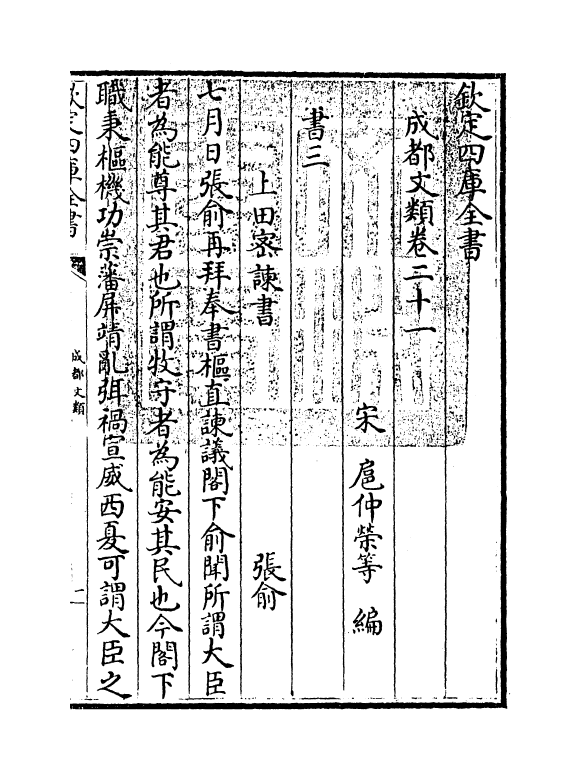 欽定四庫全書
成都文類卷二十一
宋 扈仲榮等 編
書三
上田密諫書 張俞
七月日張俞再拜奉書樞直諫議閣下俞聞所謂大臣
者為能尊其君也所謂牧守者為能安其民也今閣下
職秉樞機功崇藩屏靖亂弭禍宣威西夏可謂大臣之
欽定四庫全書
成都文類